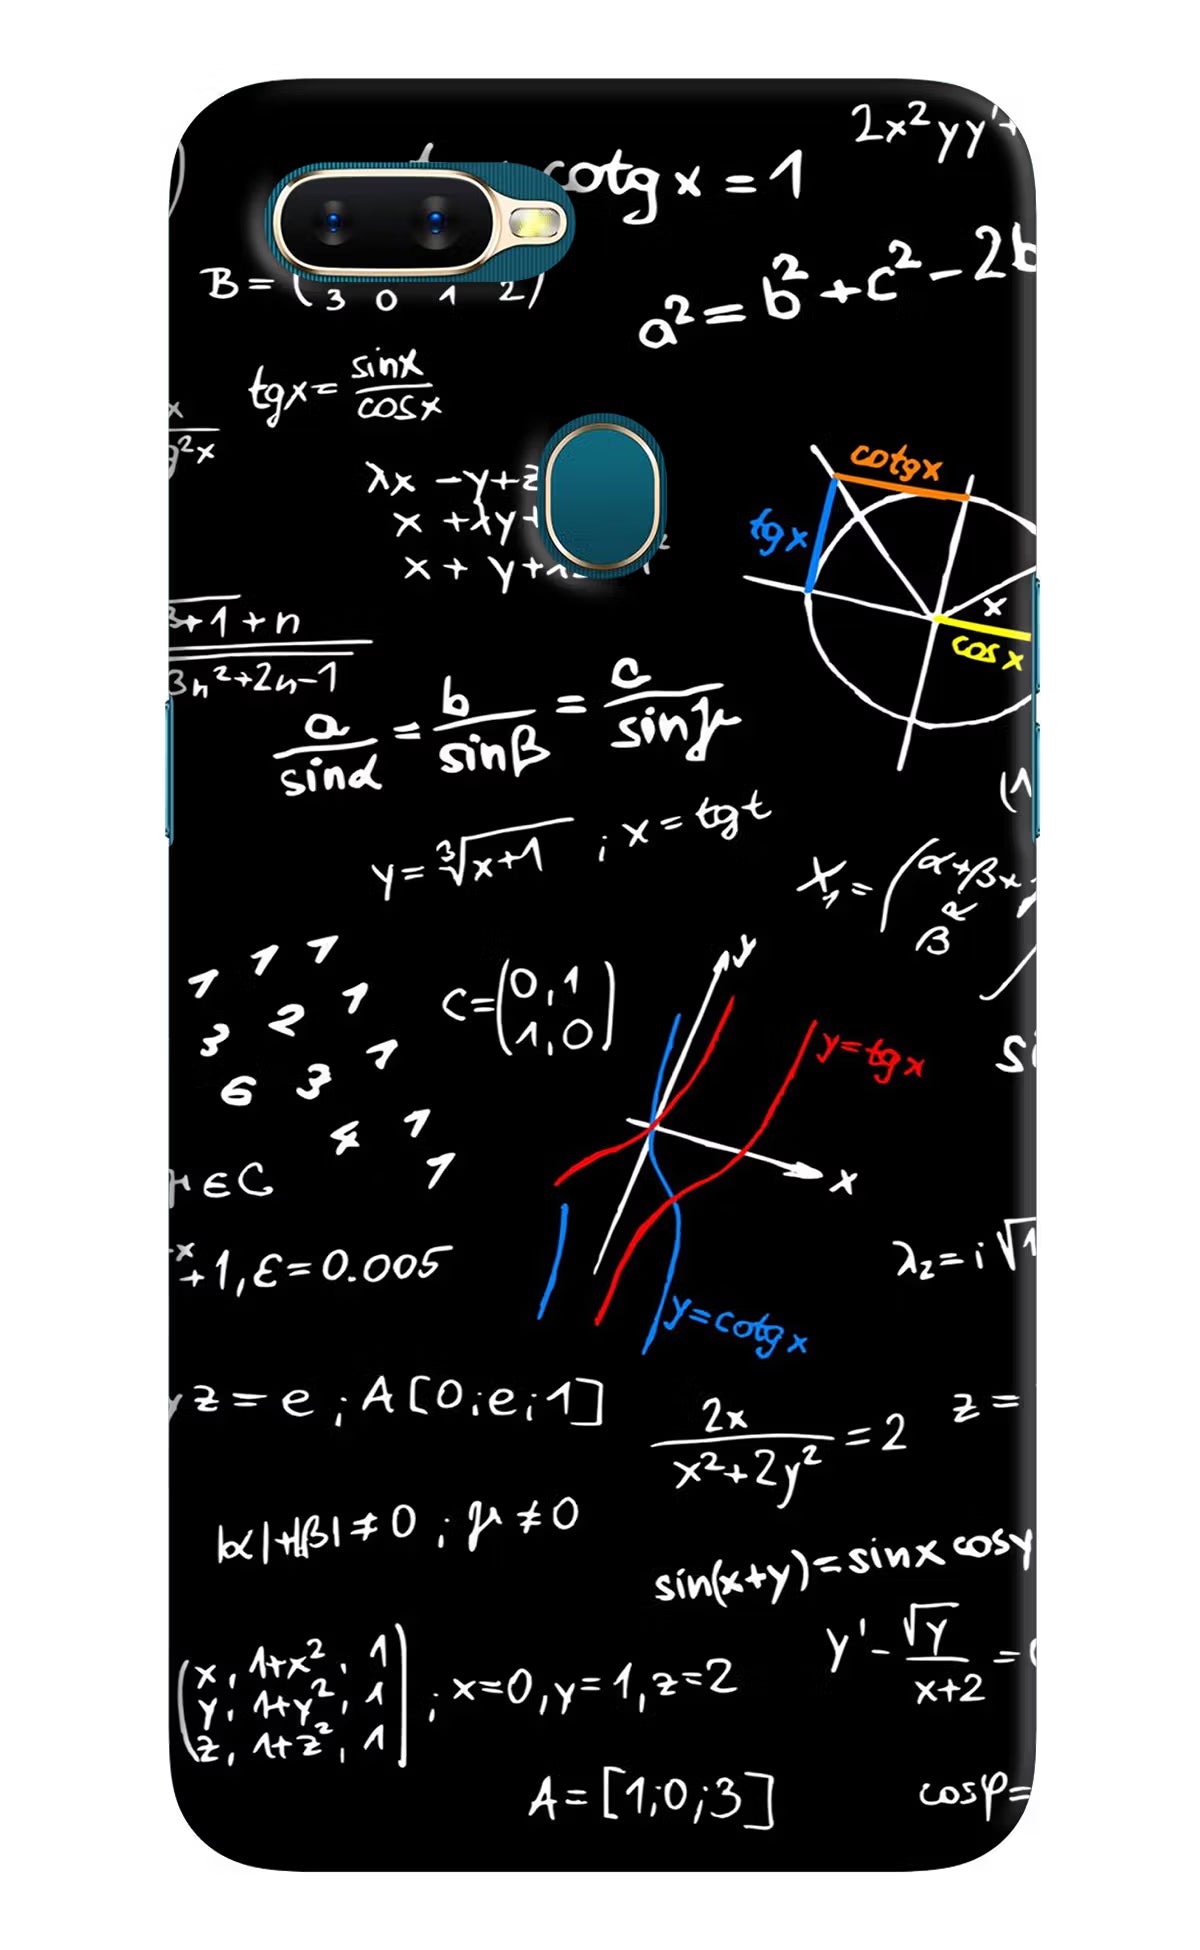 2x²yy'+
cotg x = 1
B = ( 3 0 1 2 )
a² = b² + c² - 2b
tgx = sinx / cosx
g²x
λx - y + z
x + λy +
x + y + λ
cotgx
tgx
x
cosx
3+1 + n
3n²+2n-1
a / sinα = b / sinβ = c / sinγ
y = ³√x+1 ; x = tgt
X₁ = ( α+β+
β R
1 1 1
3 2 1
6 3 1
4 1
1
C = (0,1
1,0)
y
y=tgx
x
si
μ ∈ C
+1, ε = 0.005
λ₂ = i √1
y=cotgx
z = e ; A[0;e;1]
2x / x²+2y² = 2
z =
|α|+|β| ≠ 0 ; μ ≠ 0
sin(x+y) = sinx cosy
y' - √y / x+2 =
( x, 1+x², 1
y, 1+y², 1
z, 1+z², 1 ) ; x=0, y=1, z=2
A = [1;0;3]
cosφ =